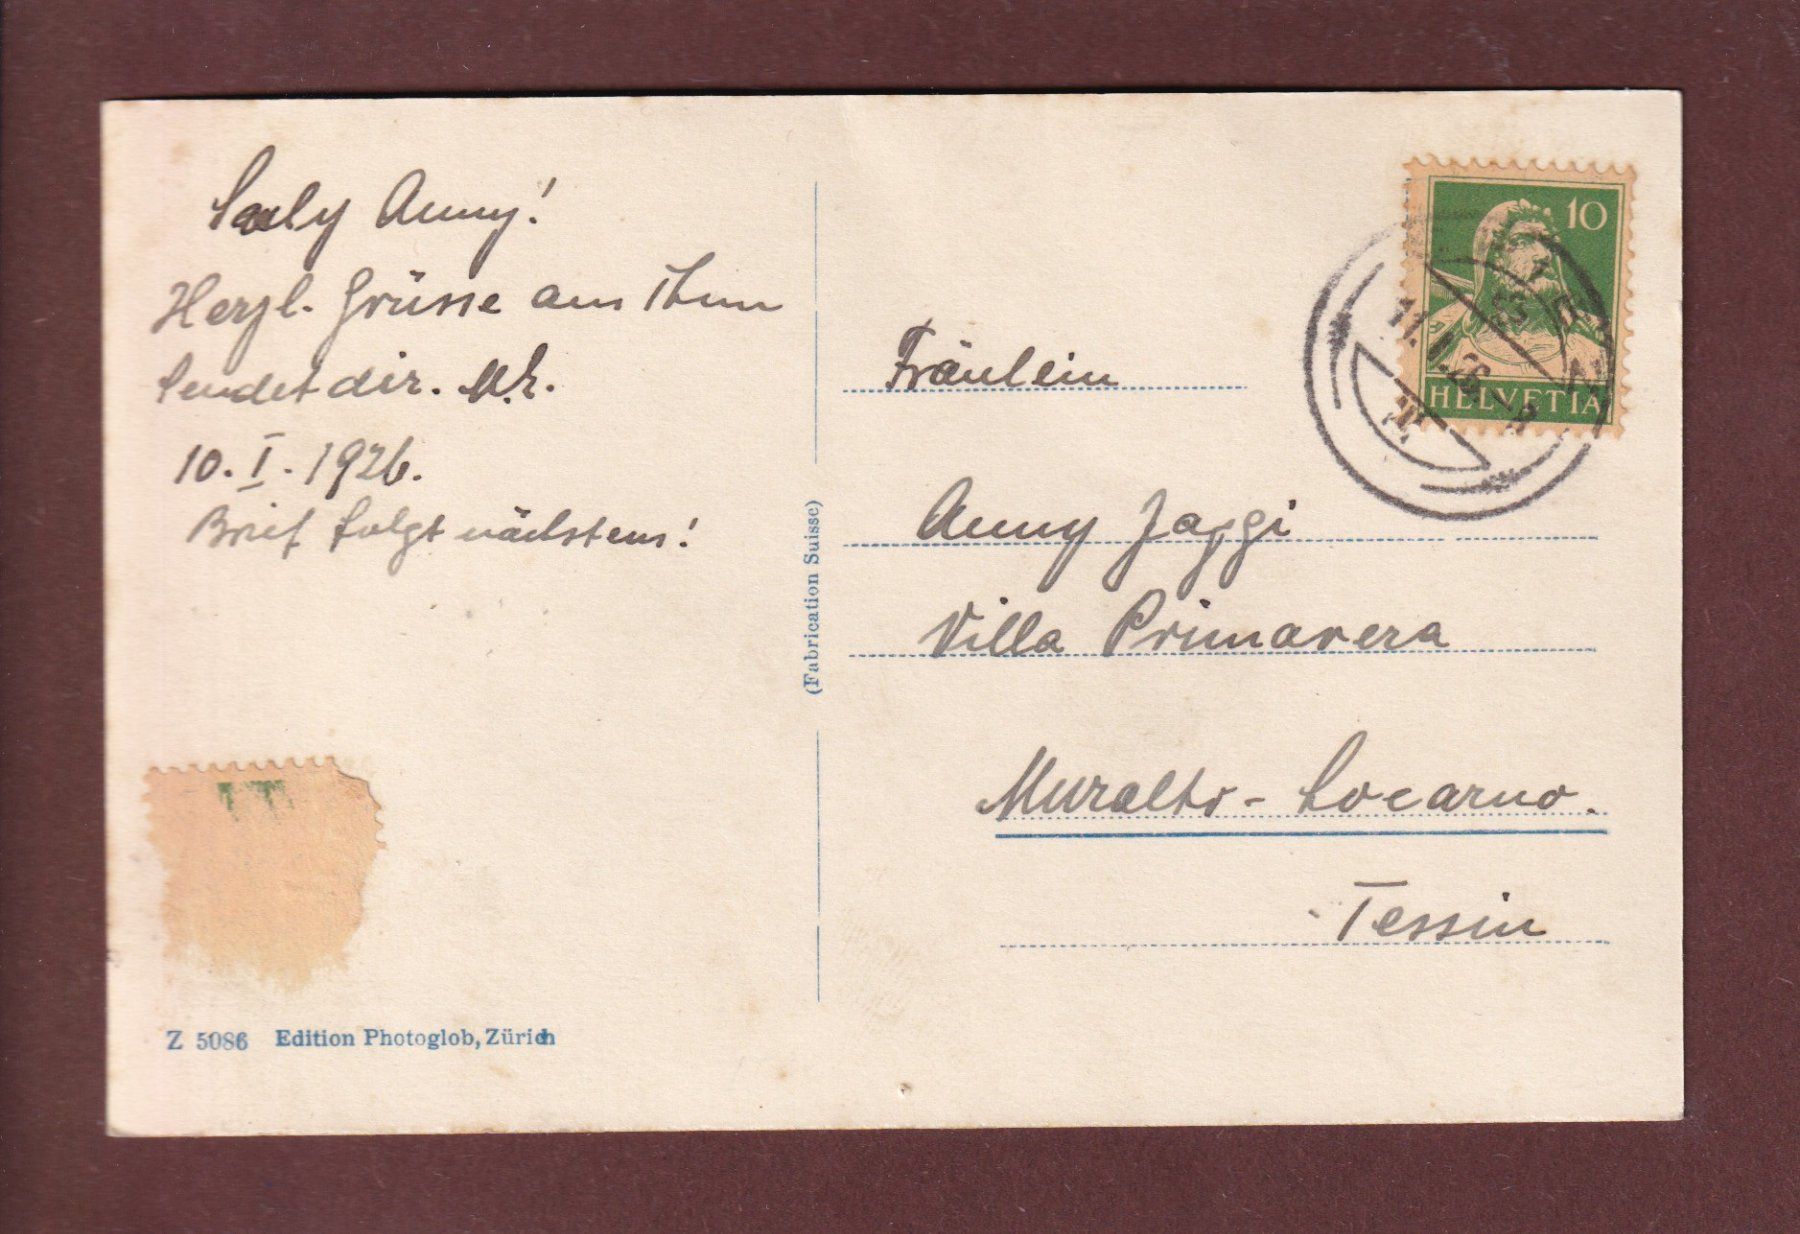 Saly Anny!
Herzl. Grüsse aus Thun
sendet dir.
10. I. 1926.
Brief folgt nächstens!
(Fabrication Suisse)
Z 5086 Edition Photoglob, Zürich
10
HELVETIA
11. I. 26
Fräulein
Anny Jaggi
Villa Primavera
Muralto - Locarno.
Tessin